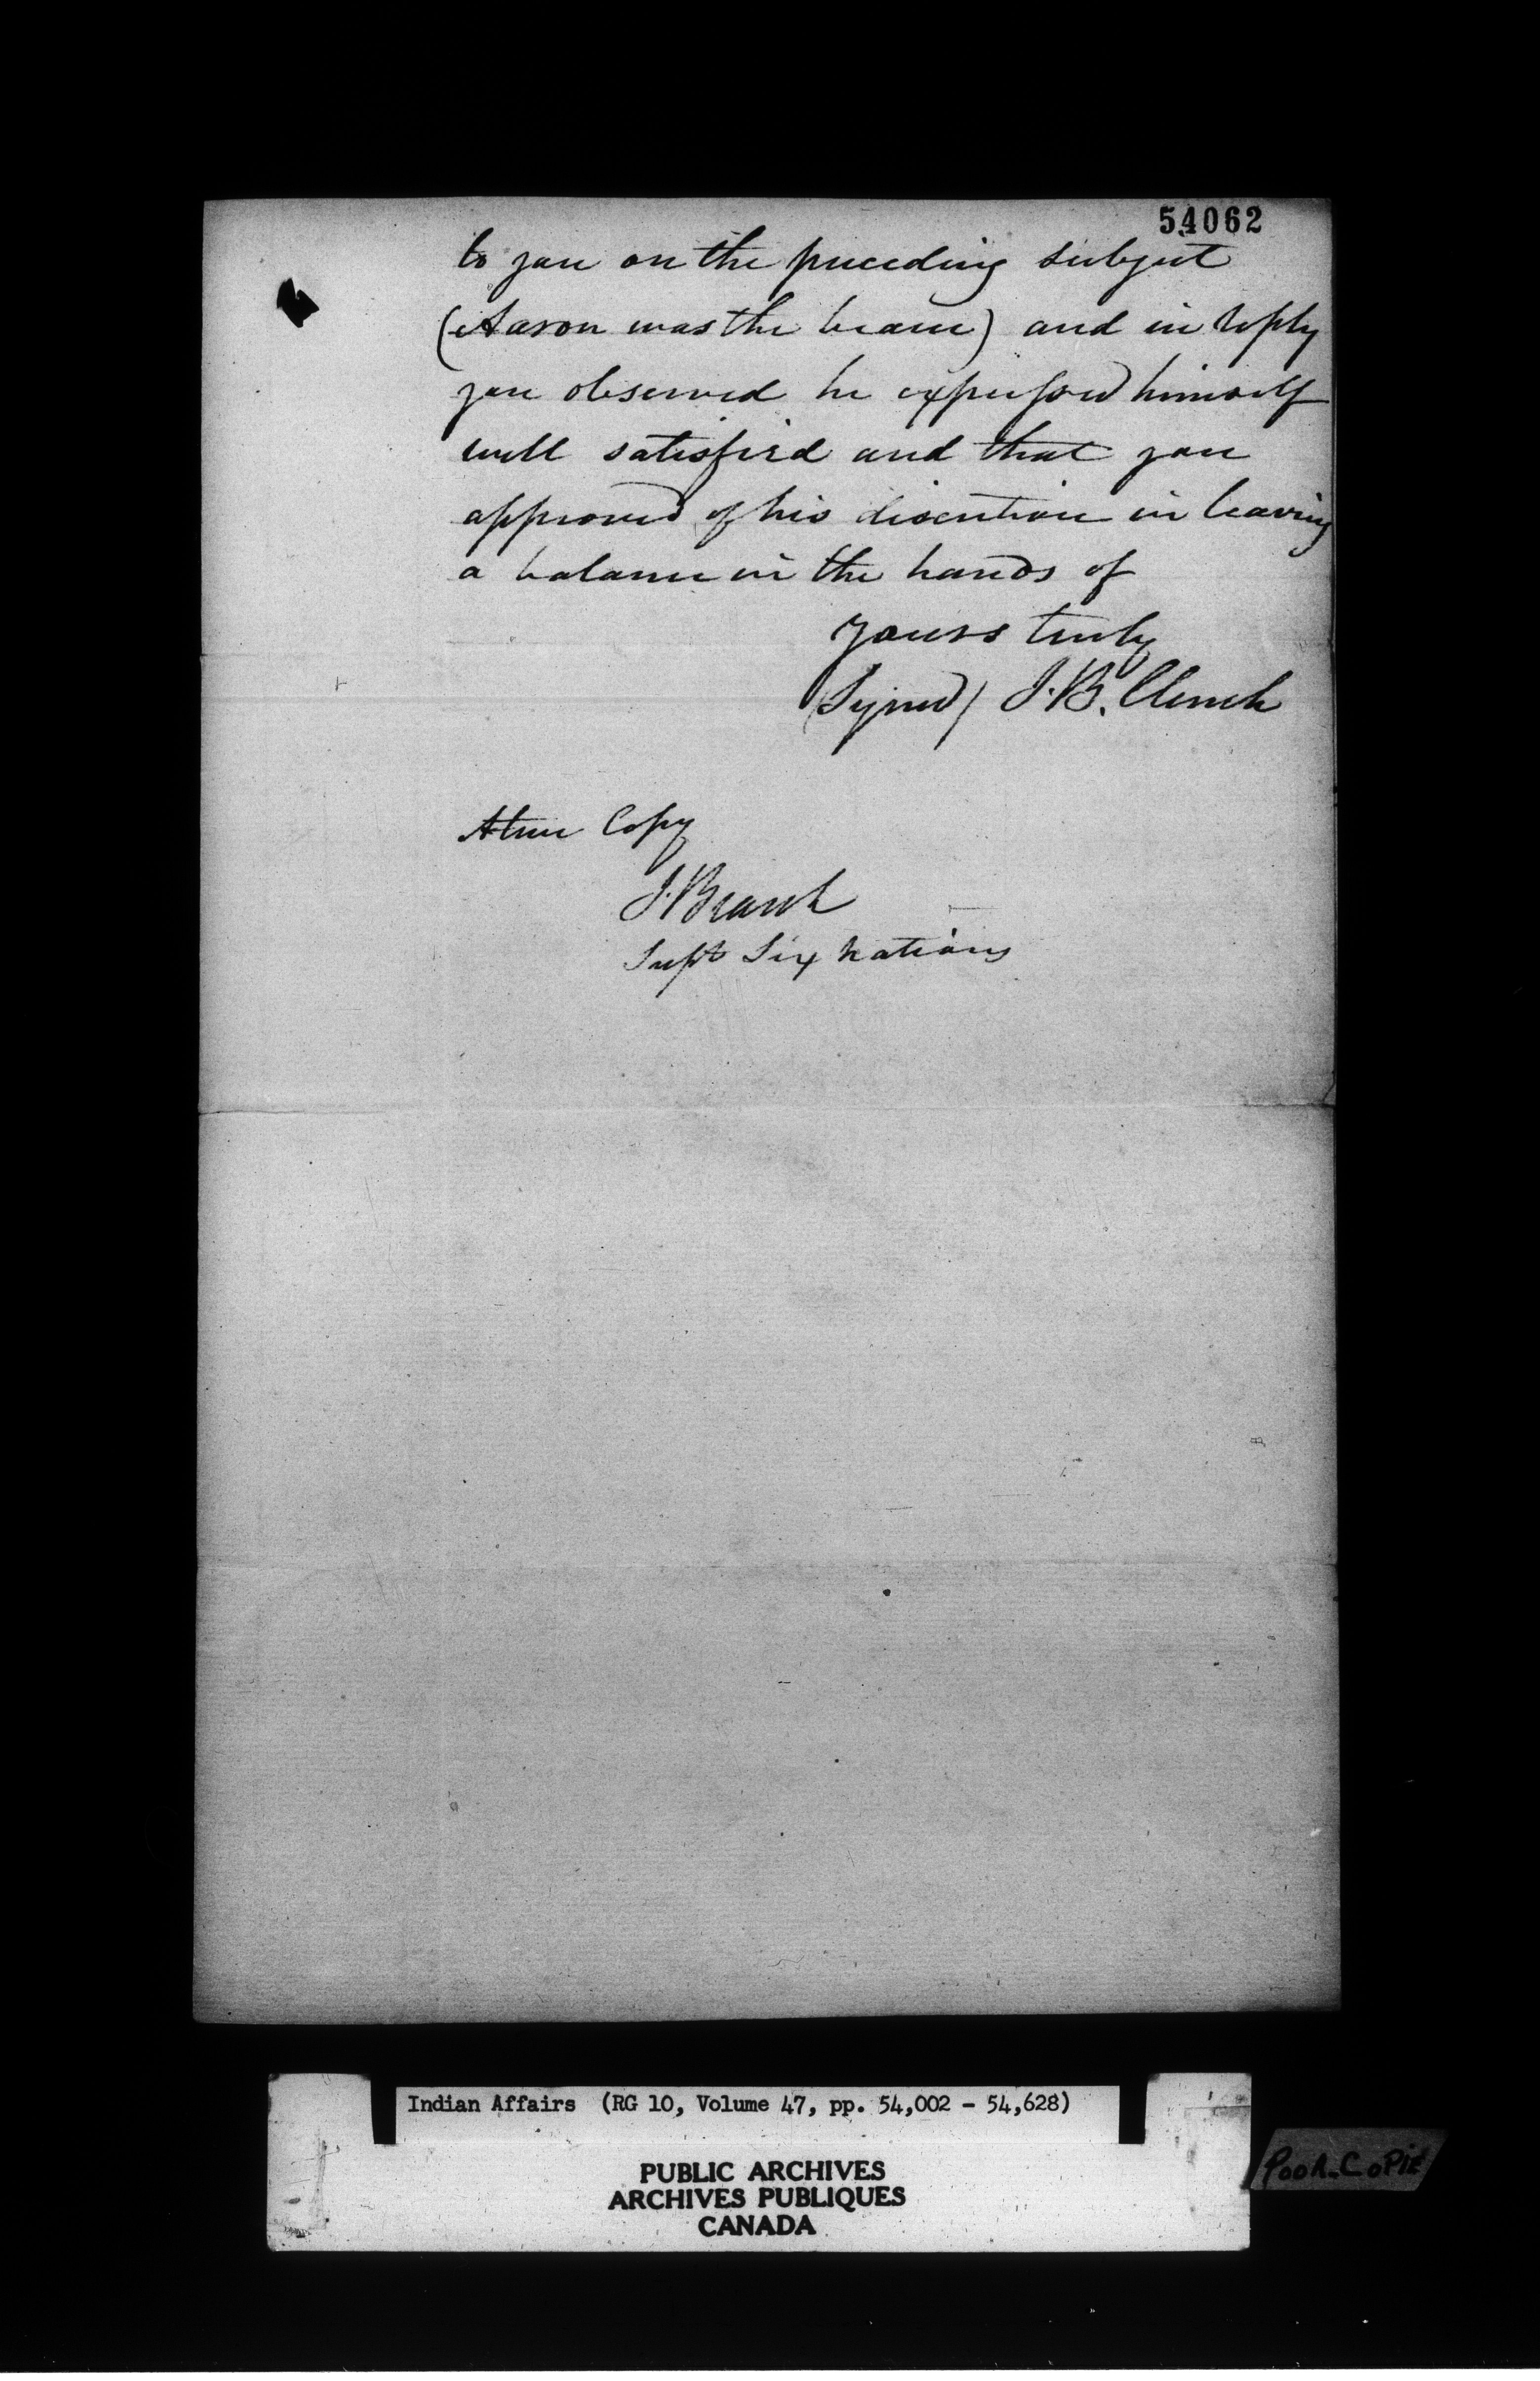 54062
to you on the preceding subject
(Aaron was the bearer) and in reply
you observed he expressed himself
well satisfied and that you
approved of his discretion in leaving
a balance in the hands of
yours truly
(Signed) J. B. Clench
A true Copy
J. Brant
Supt Six Nations
Indian Affairs (RG 10, Volume 47, pp. 54,002 - 54,628)
PUBLIC ARCHIVES
ARCHIVES PUBLIQUES
CANADA
POOR COPIE